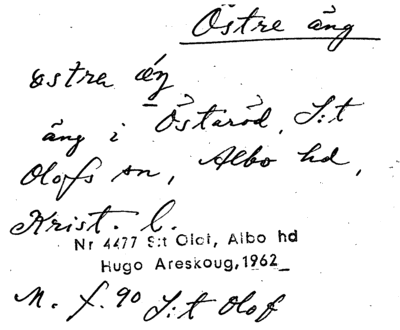 Östre äng
östra äŋ
äng i Östaröd, S:t
Olofs sn, Albo hd,
Krist. l.
Nr 4477 S:t Olof, Albo hd
Hugo Areskoug, 1962
M. f. 90 S:t Olof